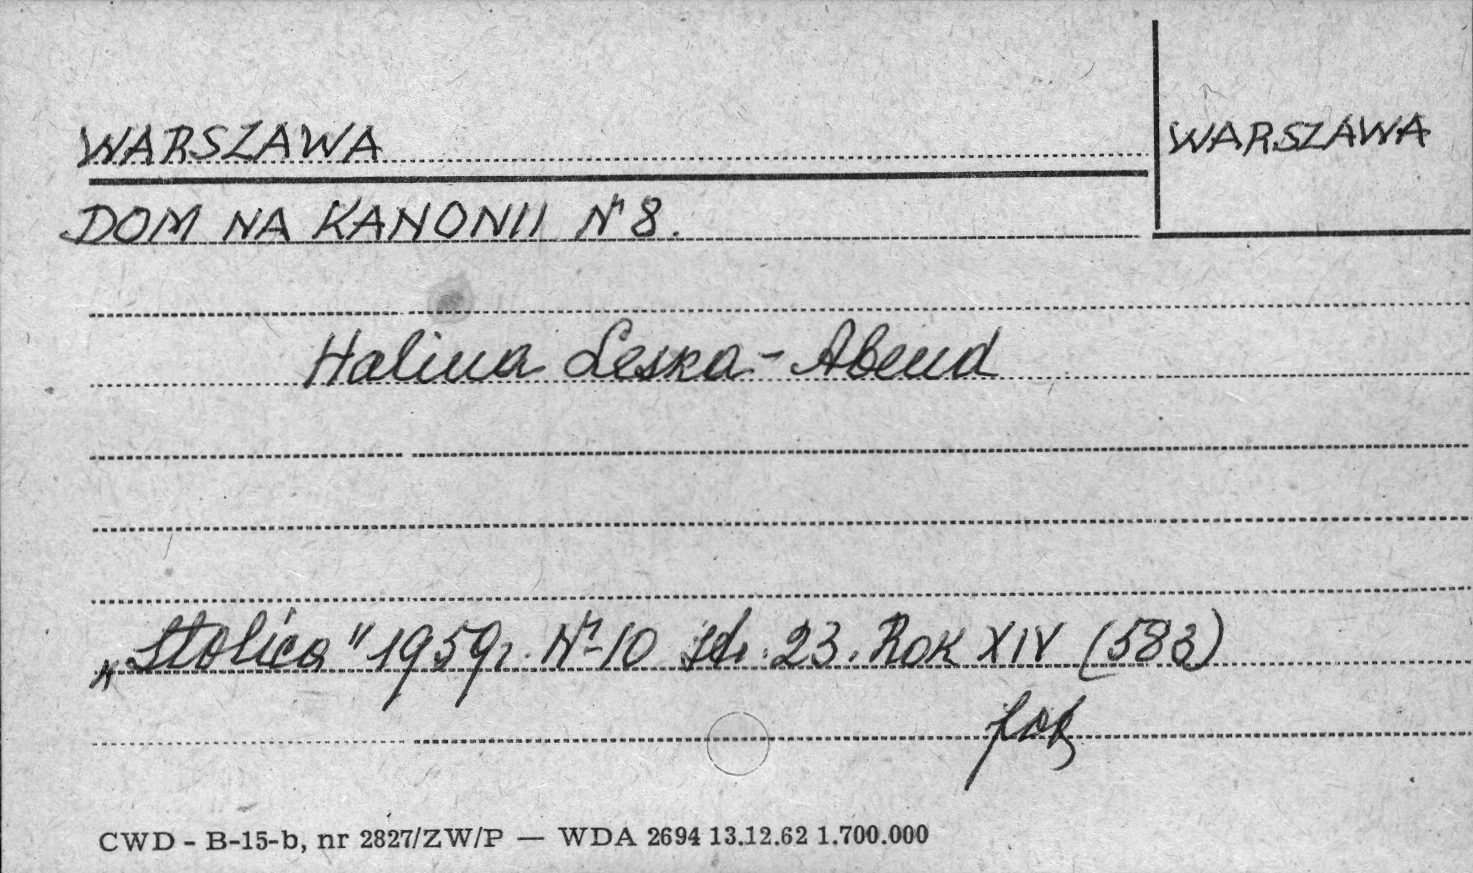 WARSZAWA
WARSZAWA
DOM NA KANONII Nr 8.
Halina Leska-Abend
„Stolica" 1959r. Nr 10 str. 23. Rok XIV (583)
fot
CWD - B-15-b, nr 2827/ZW/P — WDA 2694 13.12.62 1.700.000